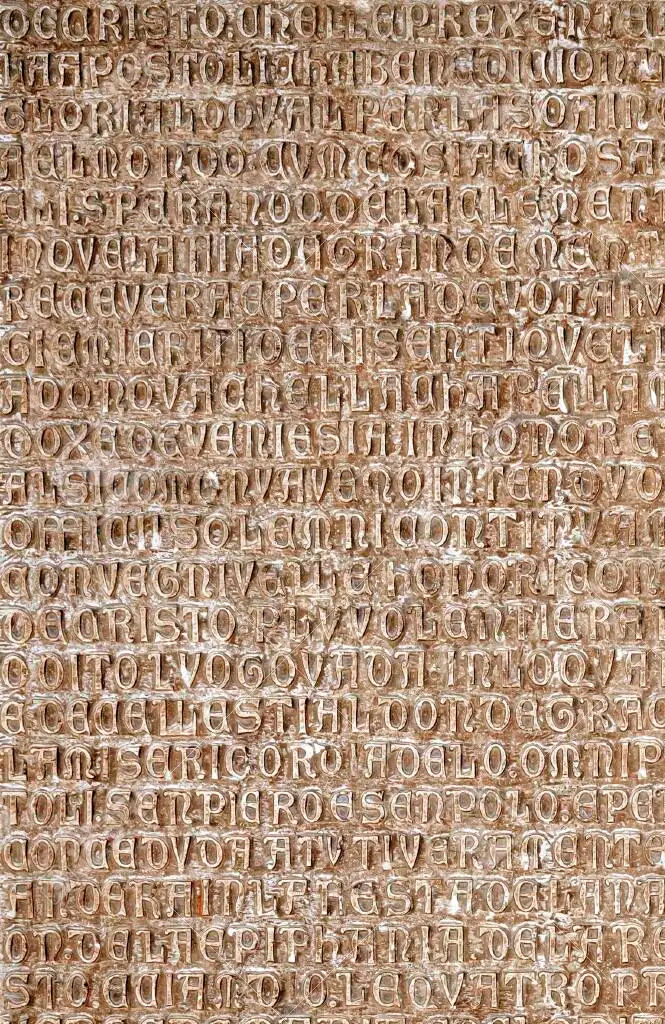 DECRISTO.CHELLE PREXENTE
LAAPOSTOLICHA BEN
GLORIA LO QVAL PER LA SOA IN
AEL MONDO. CVM COSSI ACHOSA
ELI.SPERANDO DE LA CLEMENT
IN QVELA MIA DA GRANDE MENT
RECEVERA E PER LA DEVOTA HV
GIE MERITI DE LI SENTI QVELI
ADONQVA CHELLA CHAPELLA
DOXE DE VENIESIA IN HONOR E
ALSI COMENVAVENO INTENDVO
OFFICII SOLEMNI CONTINVAM
CONVEGNIVELLE HONORI CON
DE CRISTO. PLV VOLENTIERA
DITO LVOGO VADA. IN LO QVA
E DE CELLESTIAL DON DE GRAC
LA MISERICORDIA DE LO.OMNIP
TOLI.SEN PIERO E SEN POLO.E PE
CONCEDVDA. A TVTI VERAMENTE
ANDERA IN LA FESTA DE LA NA
ON DE LA EPIPHANIA DE LA RE
STO E DIANDIO.LE QVATRO PR